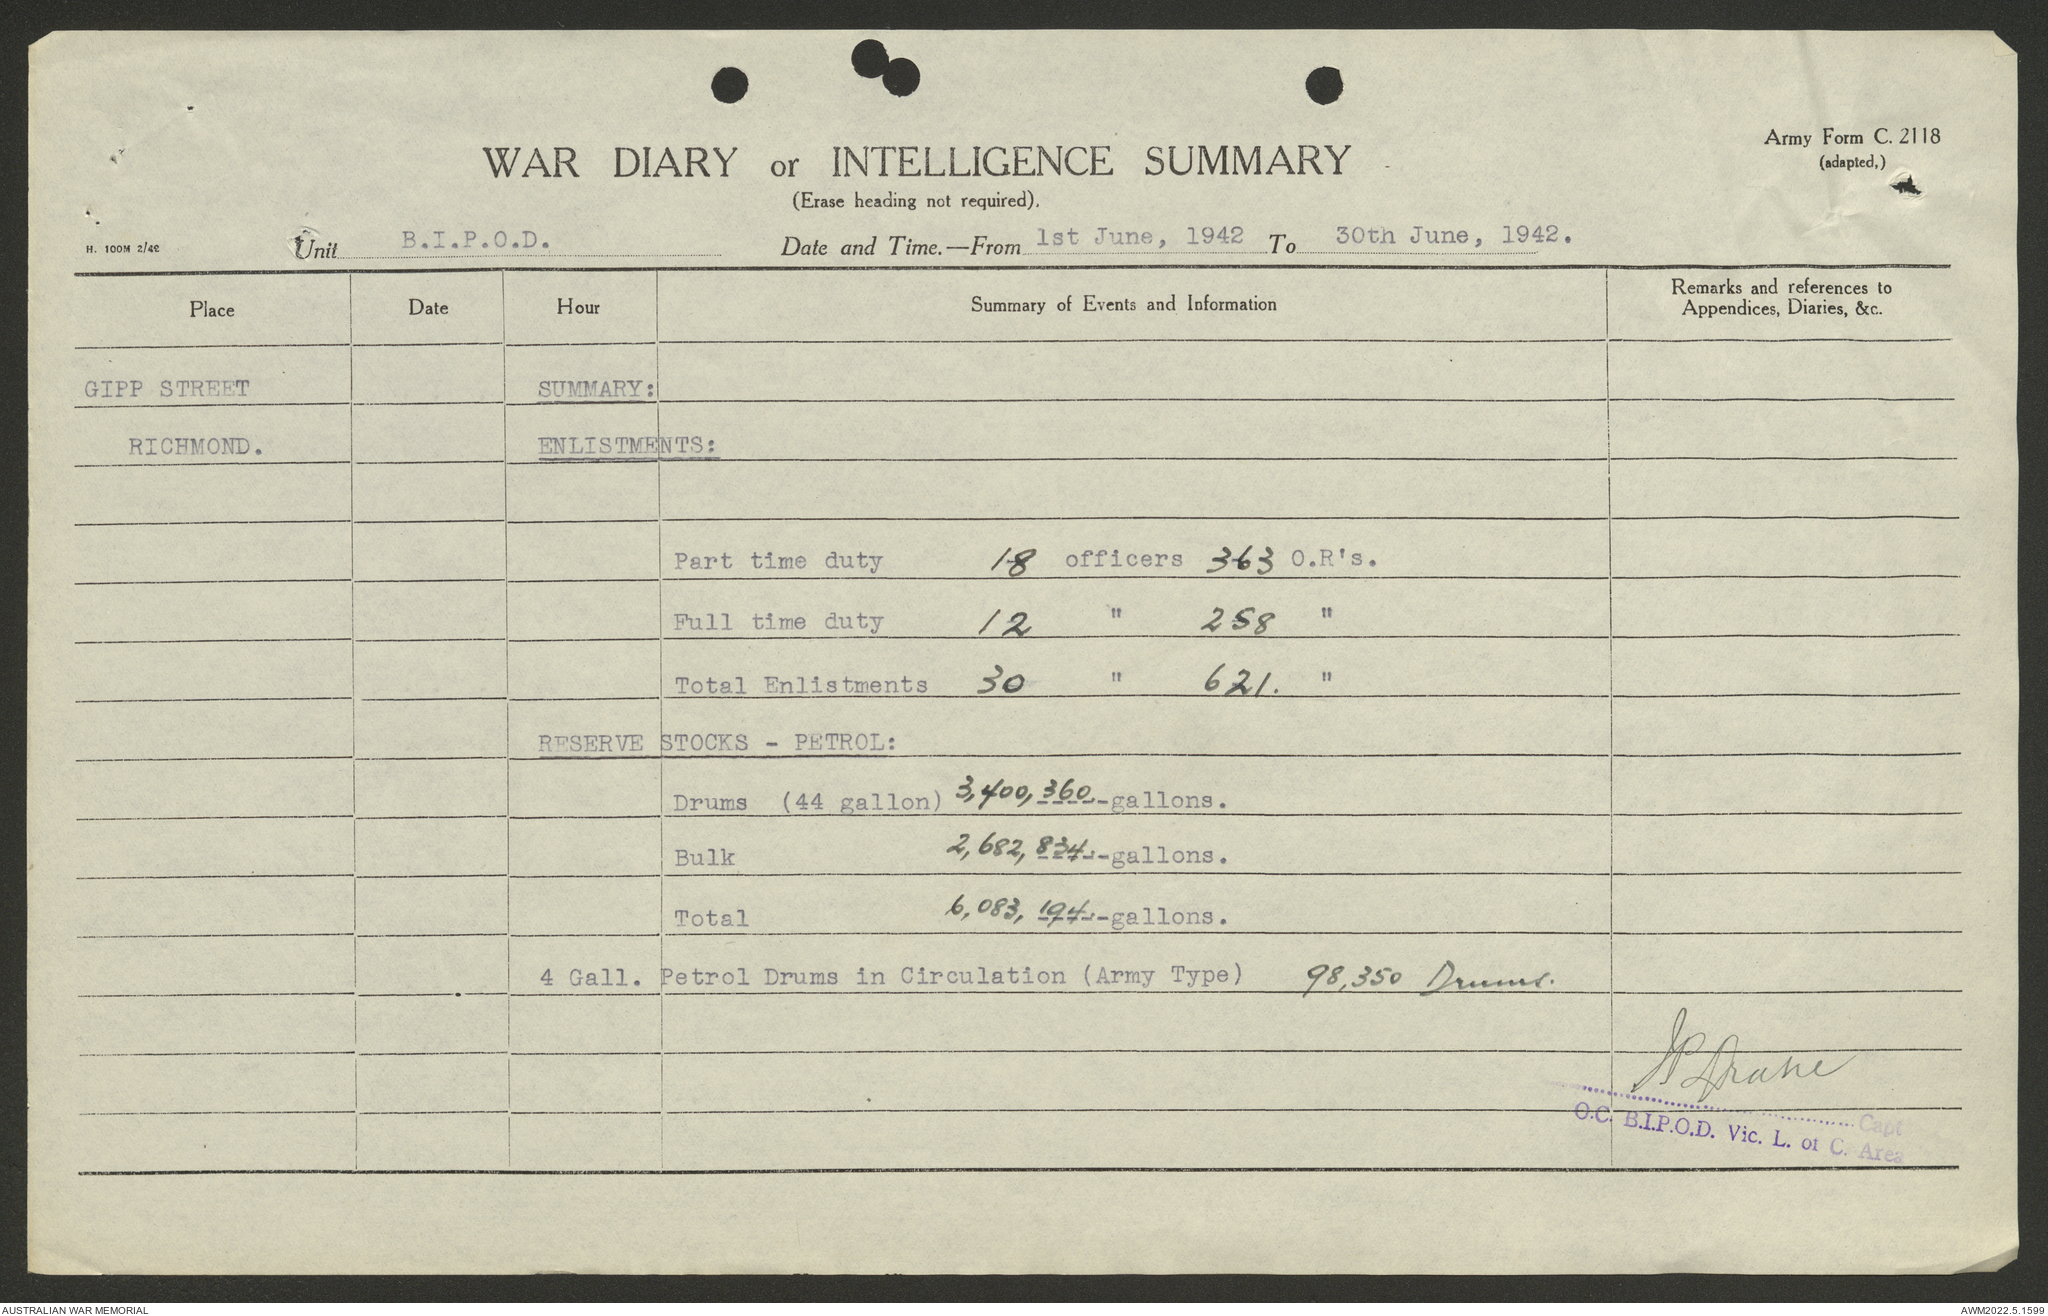 Army Form C. 2118
(adapted,)
WAR DIARY or INTELLIGENCE SUMMARY
(Erase heading not required).
H. 100M 2/42
Unit B.I.P.O.D. Date and Time.—From 1st June, 1942 To 30th June, 1942.
Place Date Hour Summary of Events and Information Remarks and references to
Appendices, Diaries, &c.
GIPP STREET SUMMARY:
RICHMOND. ENLISTMENTS:
Part time duty 18 officers 363 O.R's.
Full time duty 12 " 258 "
Total Enlistments 30 " 621. "
RESERVE STOCKS - PETROL:
Drums (44 gallon) 3,400,360.-gallons.
Bulk 2,682,834.-gallons.
Total 6,083,194.-gallons.
4 Gall. Petrol Drums in Circulation (Army Type) 98,350 Drums.
Capt
O.C. B.I.P.O.D. Vic. L. of C. Area
AUSTRALIAN WAR MEMORIAL AWM2022.5.1599